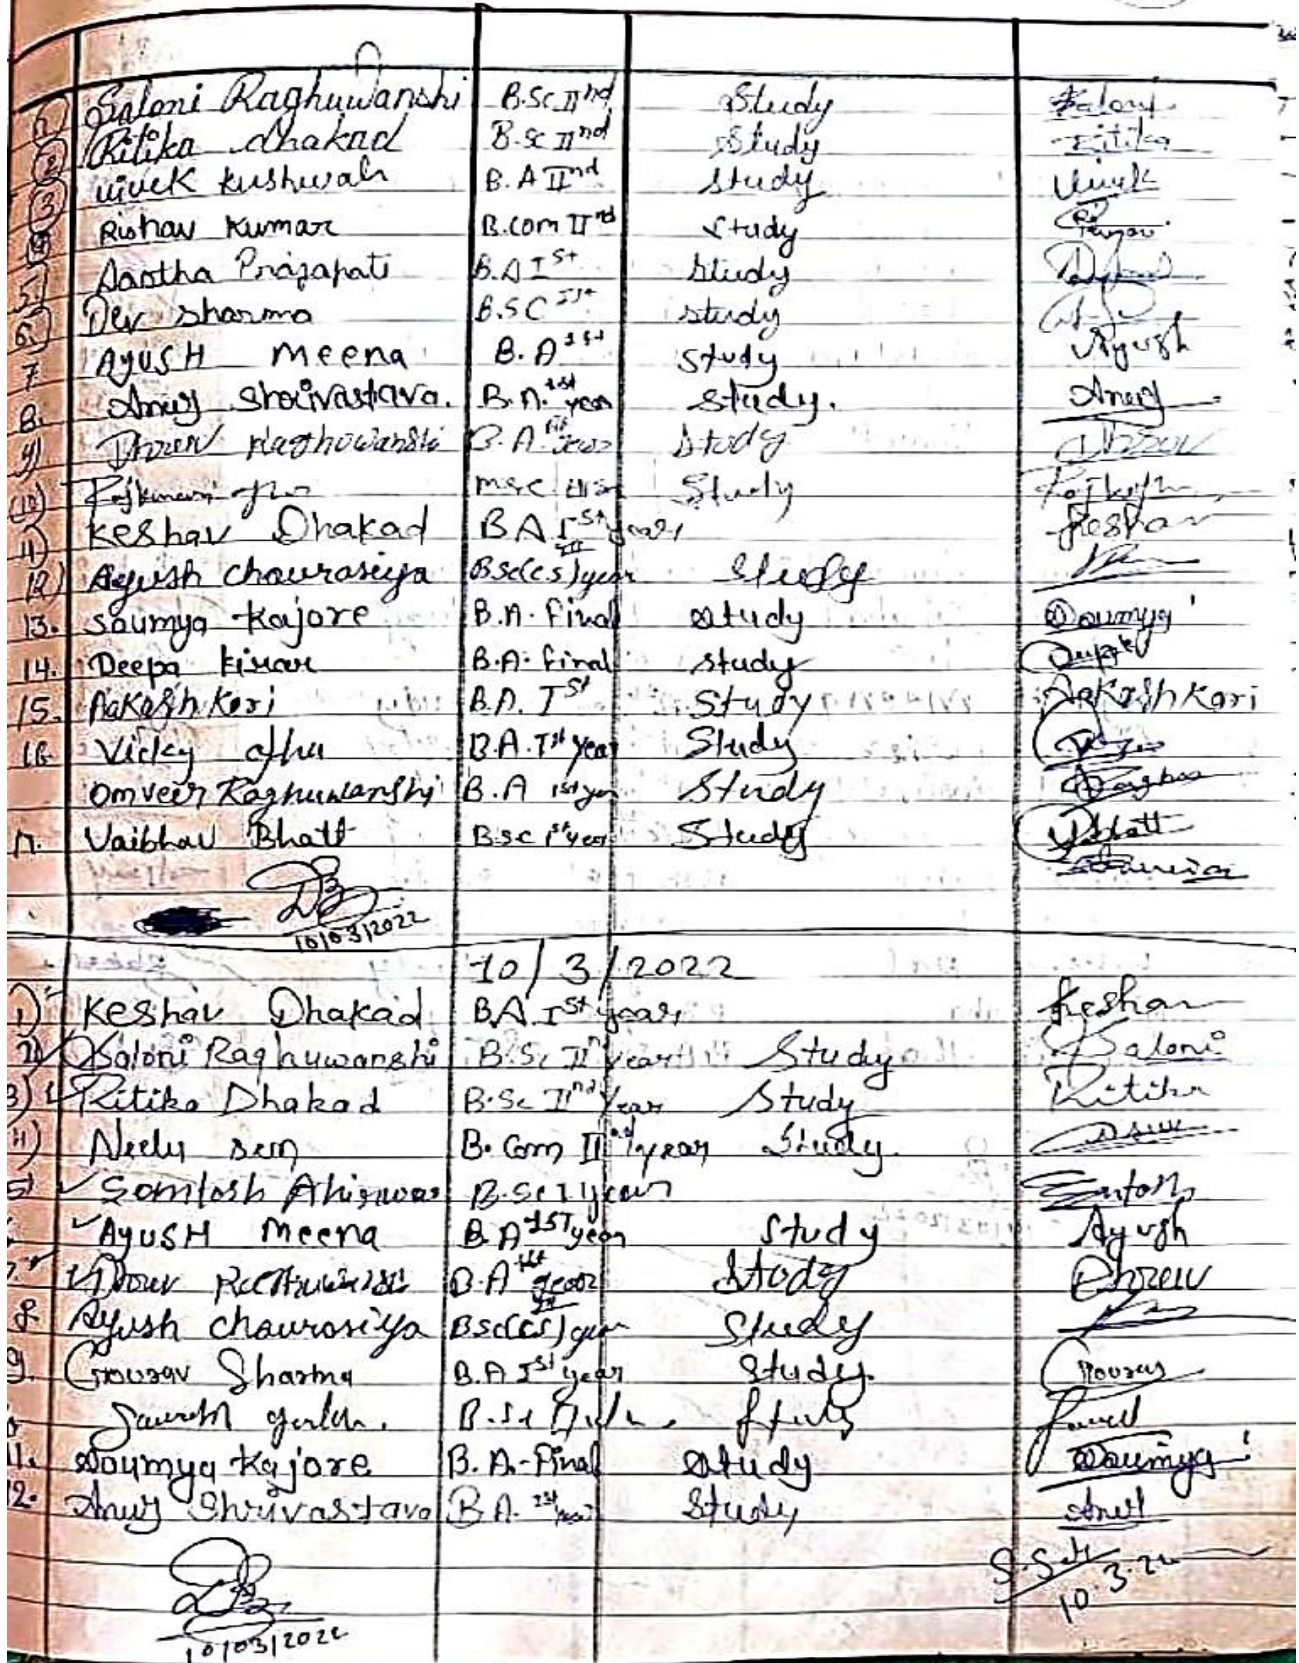 1) Saloni Raghuwanshi B.Sc IInd Study Saloni
2) Ritika dhakad B.Sc IInd Study Ritika
3) vivek kushwah B.A IInd Study Vivek
4) Rishav Kumar B.Com IInd Study
5) Aastha Prajapati B.A Ist Study
6.) Dev Sharma B.SC Study
7 AYUSH Meena B.A 1st Study Ayush
8. Anuj Shrivastava. B.A. 1st year Study. Anuj
9) Dhruv Raghuwanshi B.A. year Study
(10) Rajkumari Study
11) Keshav Dhakad B A Ist year, Keshav
12) Ayush chaurasiya Bsc(cs) II year Study
13. Saumya Kajore B.A. Final Study Soumya
14. Deepa kirar B.A. final Study
15. Aakash Kori B.A. Ist Study Aakash Kori
16. Vicky B.A. Ist year Study
Omveer Raghuwanshi B.A 1st year Study
17. Vaibhav Bhatt B.sc 1st year Study
10/03/2022
10/3/2022
1) Keshav Dhakad B.A. Ist year, Keshav
2) Saloni Raghuwanshi B.Sc IInd year Study Saloni
3) Ritika Dhakad B.Sc IInd Year Study Ritika
4) Neelu sen B. Com IInd year Study.
5) Santosh Ahirwar B.Sc year
AYUSH Meena B.A 1ST year Study Ayush
7. B.A 1st year Study
8. Ayush chaurasiya Bsc(cs) II year Study
9. Gourav Sharma B.A Ist year Study. Gourav
11. Soumya Kajore B.A.-Final Study Soumya
12. Anuj Shrivastava B.A. 1st year Study Anuj
10/03/2022
10.3.22